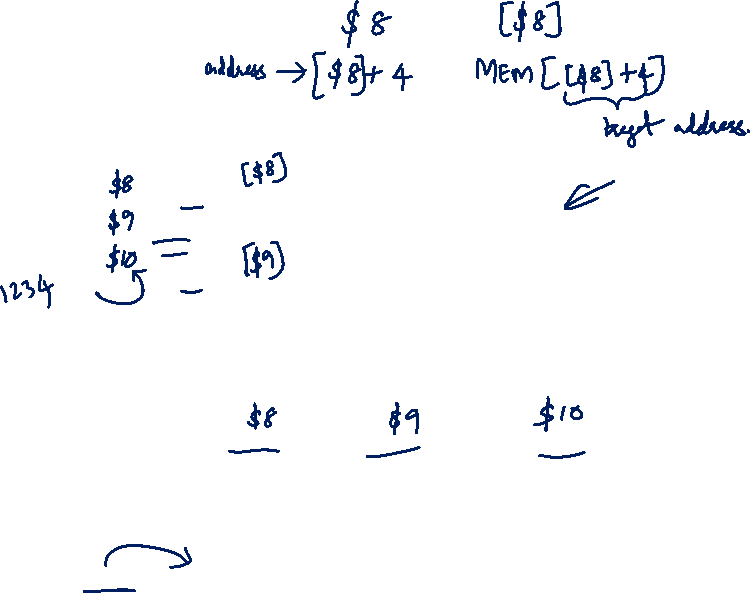 $8 [$8]
address → [$8]+ 4 MEM [[$8] +4]
target address.
$8 [$8]
$9
$10 [$9]
1234
$8 $9 $10